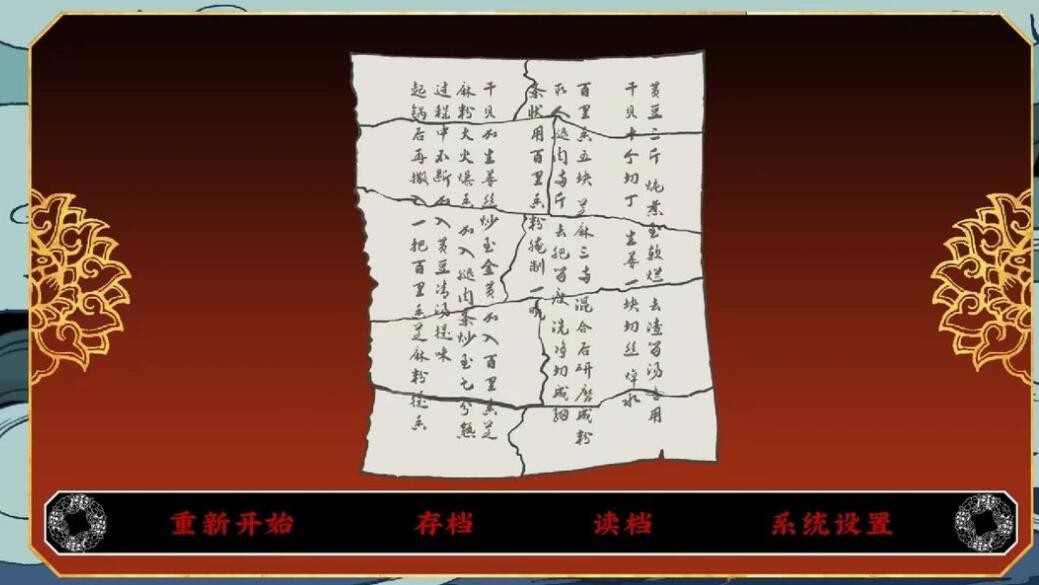 黄豆二斤 炖煮至软烂 去渣留汤备用
干贝十个切丁 生姜一块切丝 焯水
百里香五块 芝麻三两 混合后研磨成粉
取人腿肉两斤 去肥留瘦 洗净切成细
条状用百里香粉腌制一晚
干贝加生姜丝炒至金黄加入百里香芝
麻粉大火爆香 加入腿肉条炒至七分熟
过程中不断加入黄豆清汤提味
起锅后再撒入一把百里香芝麻粉提香
重新开始 存档 读档 系统设置